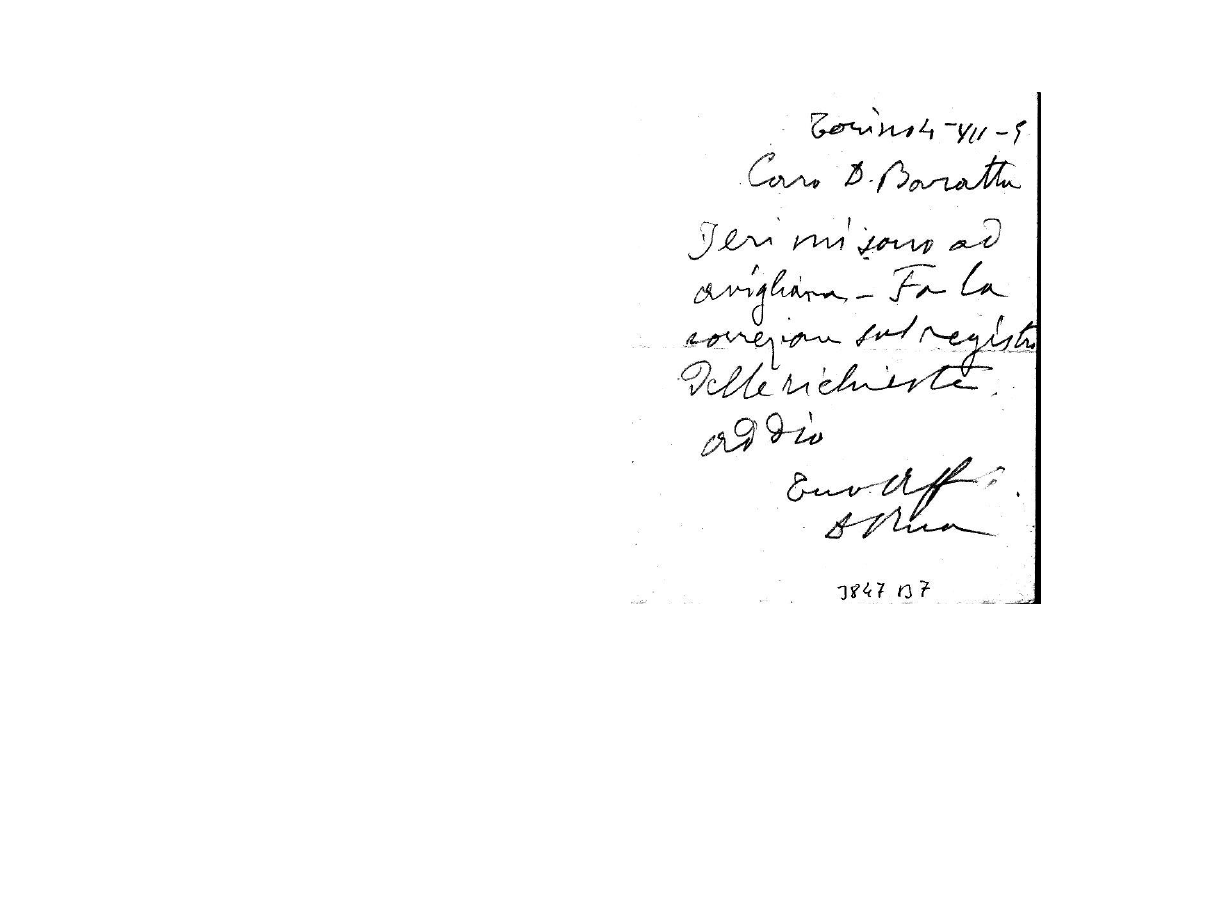 Torino 4-VII-9
Caro D. Baratta
Ieri mi sono ad
avigliana - Fa la
correzion sul registro
Delle richieste.
addio
Tuo aff
D Rua
3847 B7